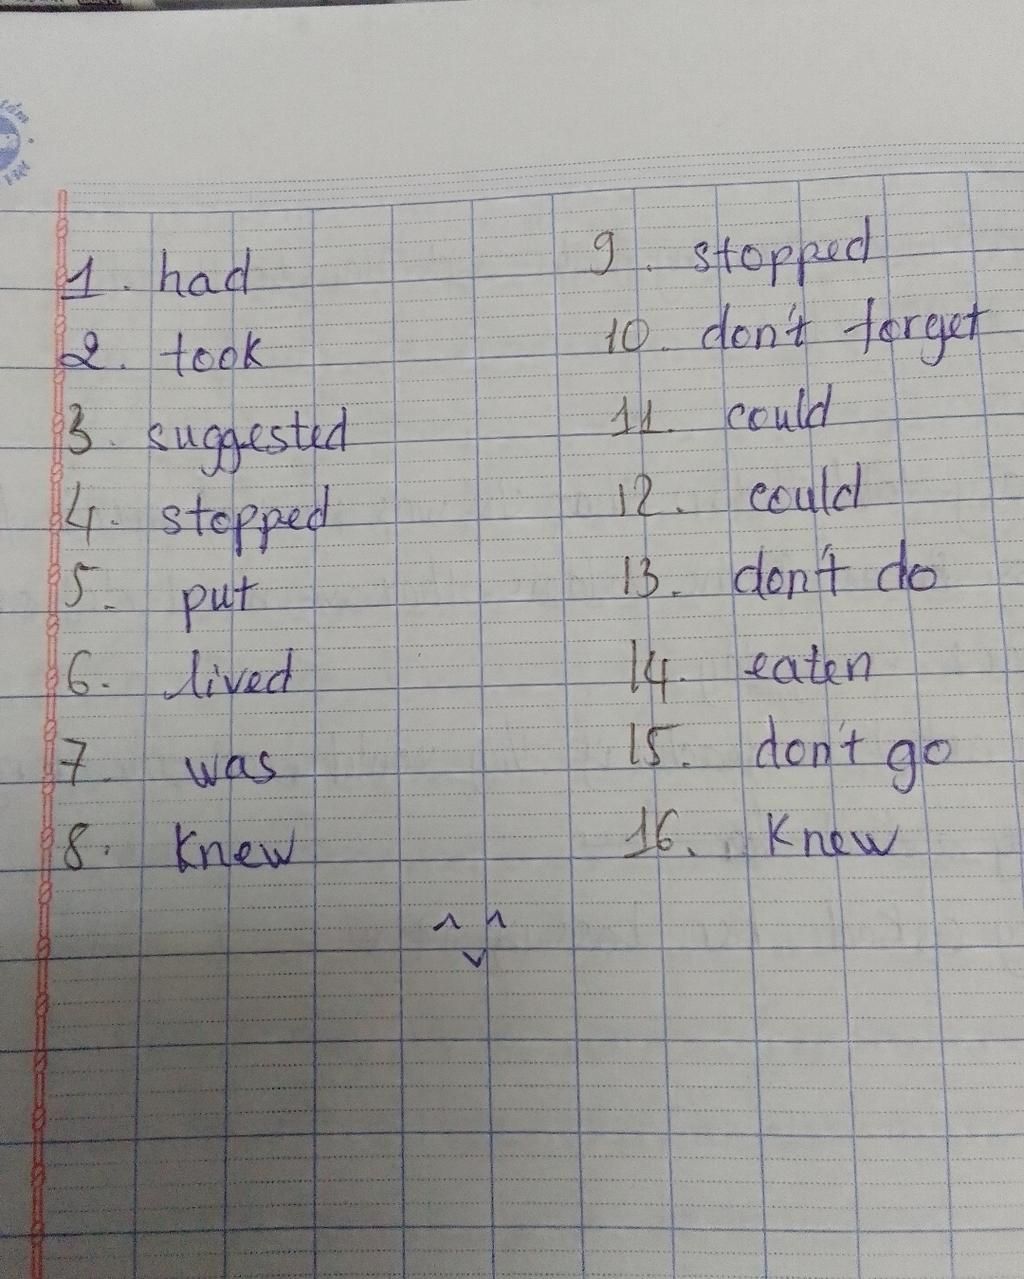 1. had
2. took
3. suggested
4. stopped
5. put
6. lived
7. was
8. Knew
9. stopped
10. don't forget
11. could
12. could
13. don't do
14. eaten
15. don't go
16. Knew